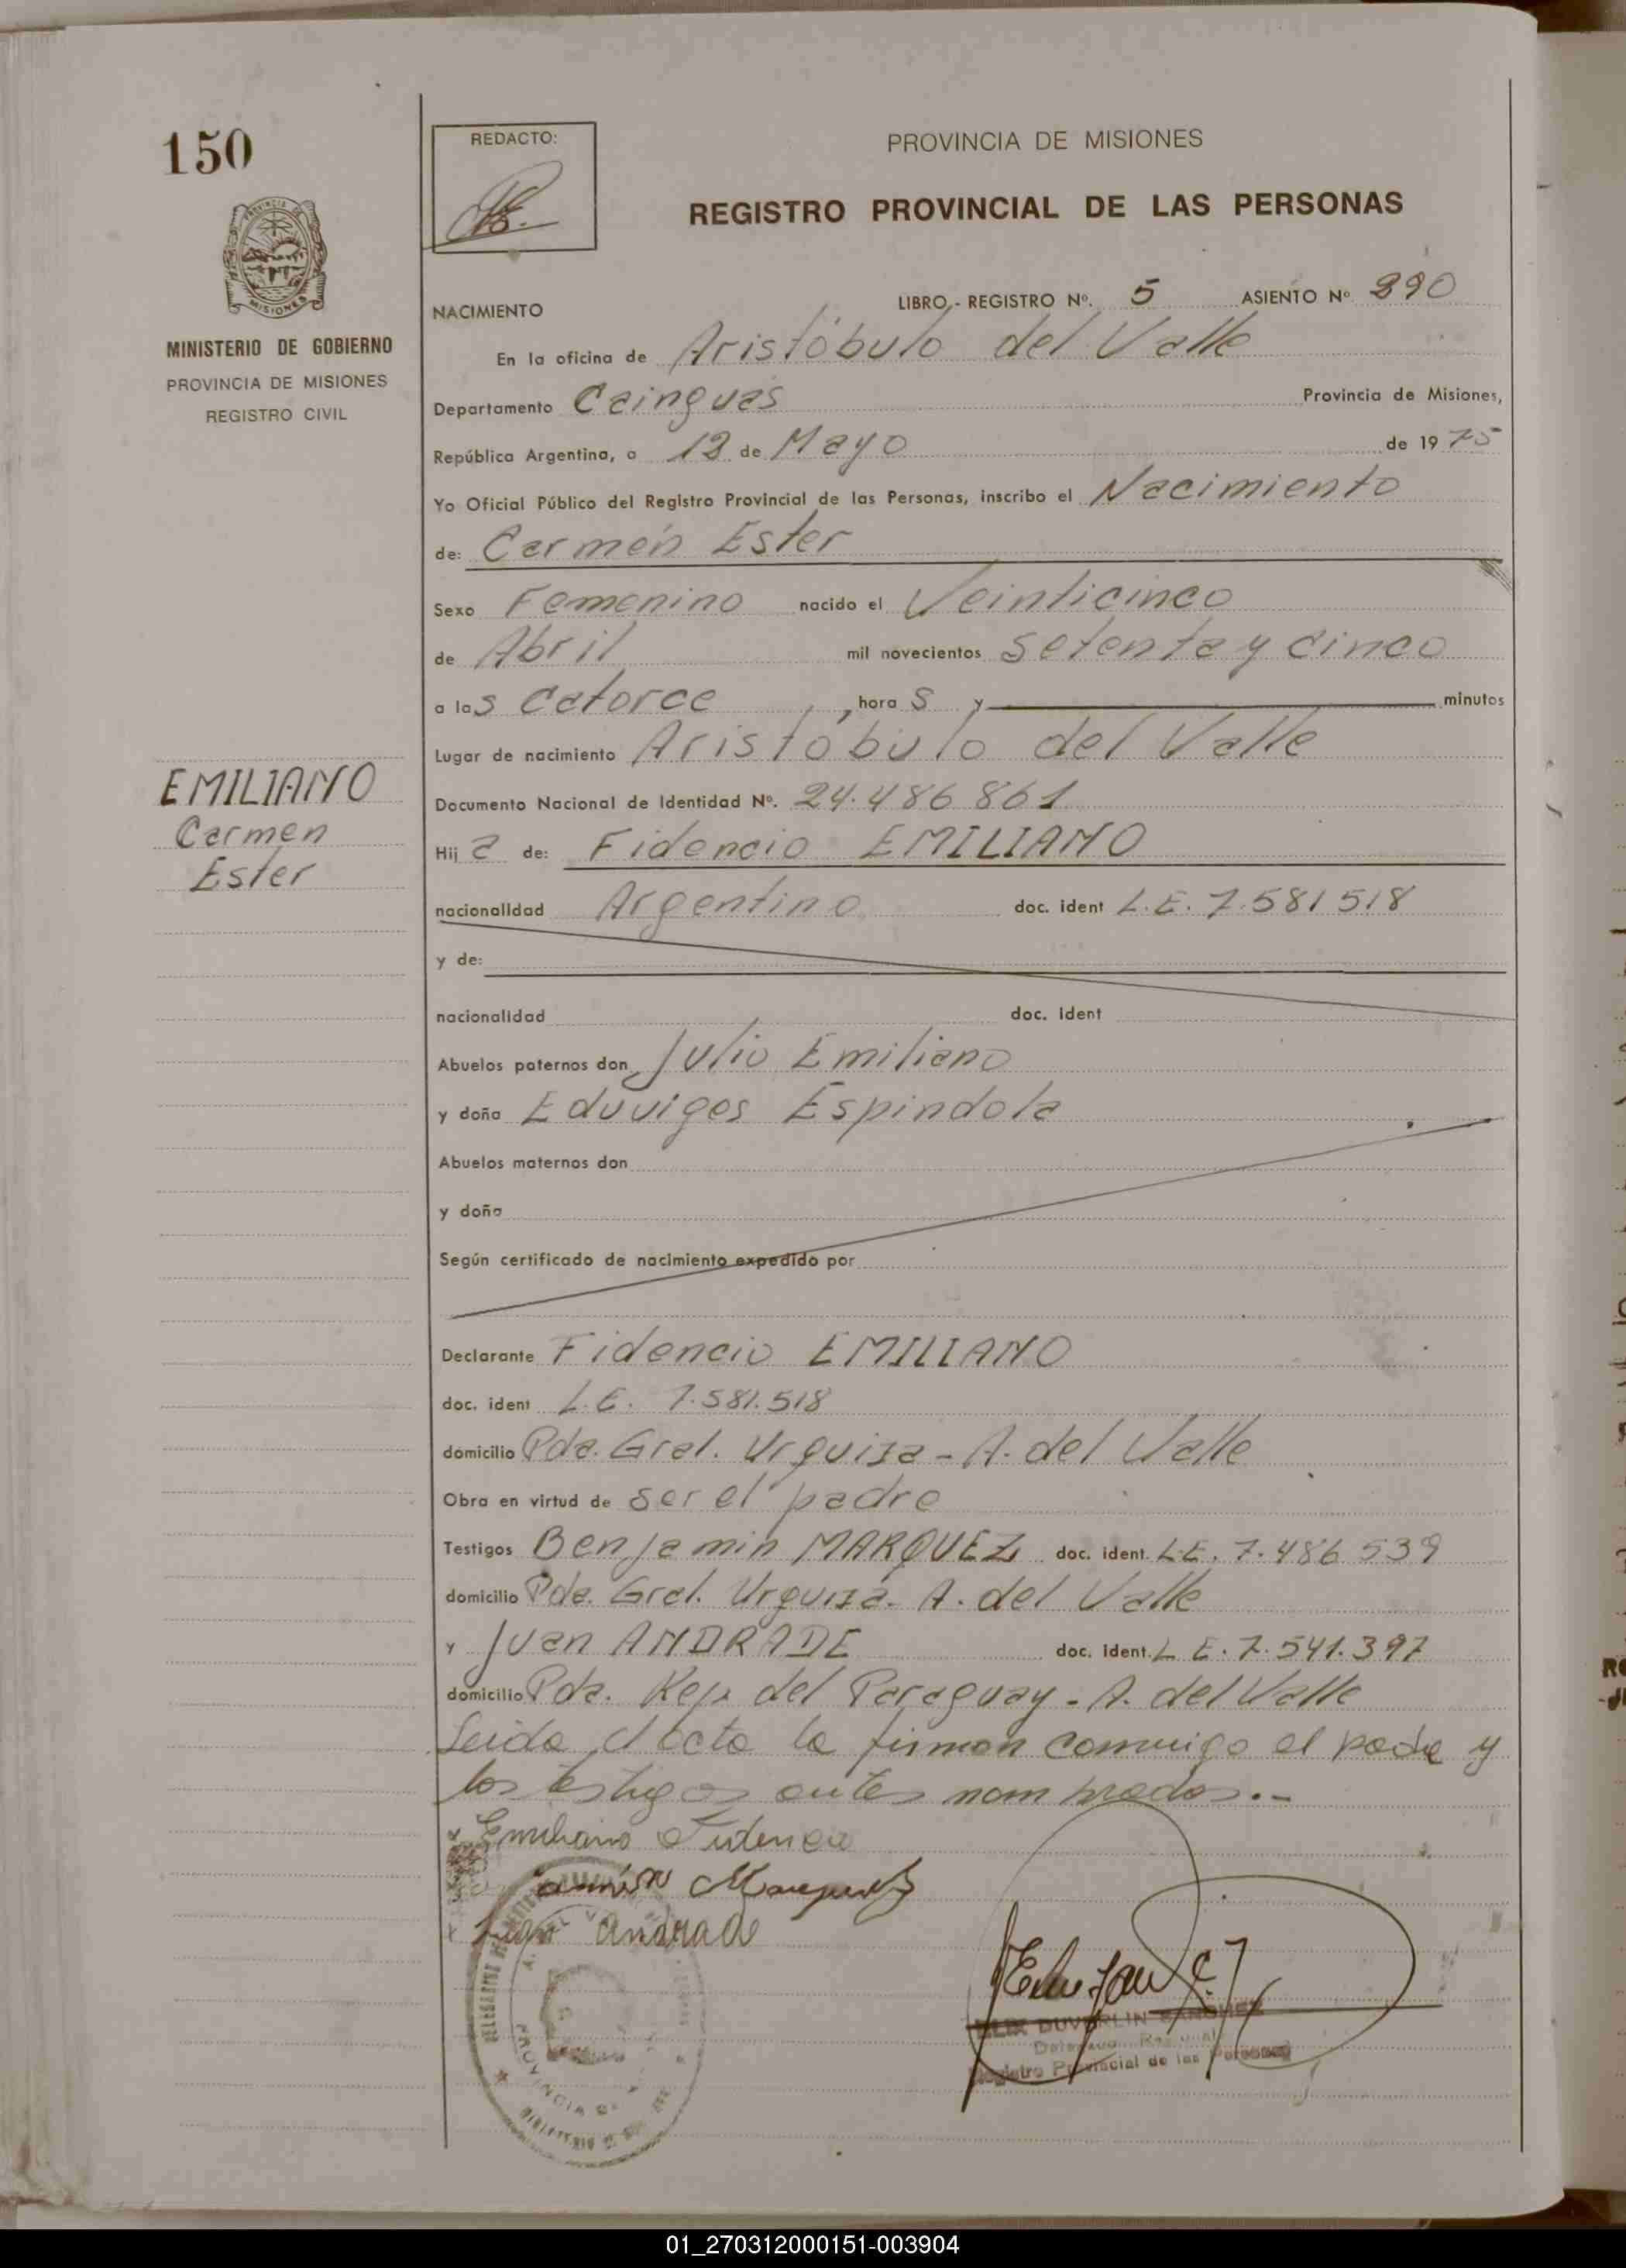 150
REDACTO:
PROVINCIA DE MISIONES
REGISTRO PROVINCIAL DE LAS PERSONAS
PROVINCIA DE
MISIONES
MINISTERIO DE GOBIERNO
PROVINCIA DE MISIONES
REGISTRO CIVIL
NACIMIENTO LIBRO.- REGISTRO Nº. 5 ASIENTO Nº 890
En la oficina de Aristóbulo del Valle
Departamento Cainguas Provincia de Misiones,
República Argentina, a 12 de Mayo de 1975
Yo Oficial Público del Registro Provincial de las Personas, inscribo el Nacimiento
de: Carmen Ester
Sexo Femenino nacido el Veinticinco
de Abril mil novecientos setenta y cinco
a las catorce , hora s y minutos
Lugar de nacimiento Aristóbulo del Valle
EMILIANO
Carmen
Ester
Documento Nacional de Identidad Nº. 24.486.861
Hij a de: Fidencio EMILIANO
nacionalidad Argentino doc. ident L.E. 7.581518
y de:
nacionalidad doc. ident
Abuelos paternos don Julio Emiliano
y doña Eduviges Espindola
Abuelos maternos don
y doña
Según certificado de nacimiento expedido por
Declarante Fidencio EMILIANO
doc. ident L.E. 7.581.518
domicilio Pda. Gral. Urquiza - A. del Valle
Obra en virtud de ser el padre
Testigos Benjamin MARQUEZ doc. ident. L.E. 7.486.539
domicilio Pda. Gral. Urquiza. A. del Valle
y Juan ANDRADE doc. ident. L E. 7.541.397
domicilio Pda. Rep. del Paraguay - A. del Valle
Leida el acta la firman conmigo el padre y
los testigos antes nombrados.-
Emiliano Fidencio
Marquez
Juan Andrade
PROVINCIA DE
DUVERLIN SANCHEZ
Registro Provincial de las Personas
01_270312000151-003904